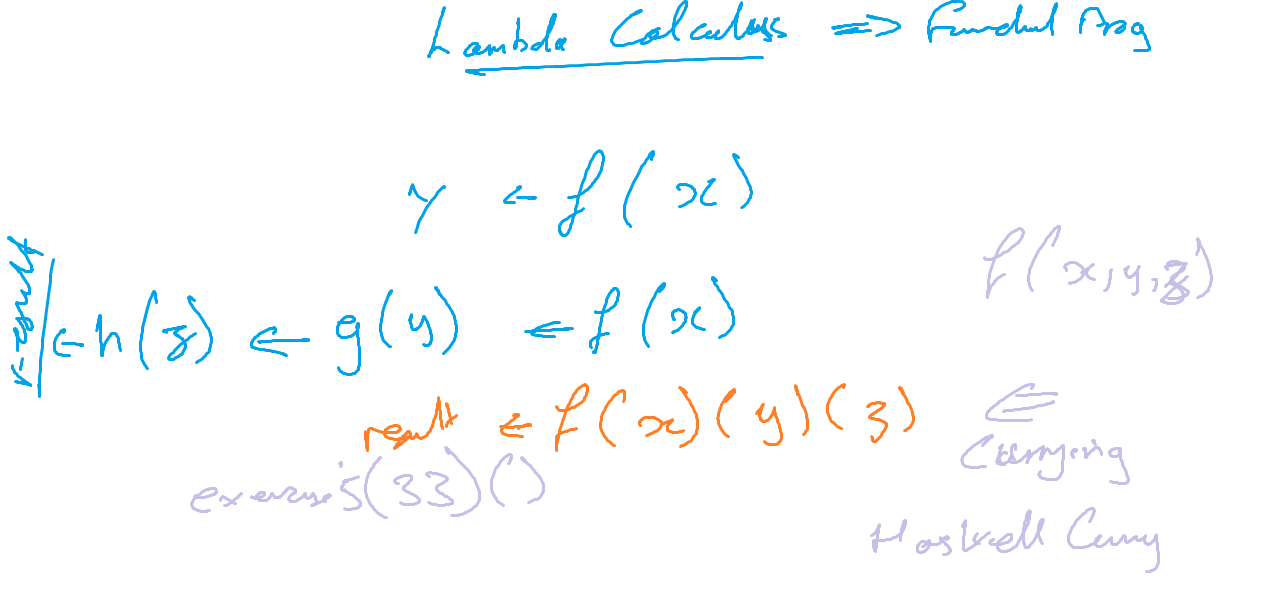 Lambda Calculus => Functul Prog
y ← f(x)
f(x,y,z)
r-result ← h(z) ← g(y) ← f(x)
result ← f(x)(y)(z) ⇐
Currying
exercise5(33)()
Haskell Curry